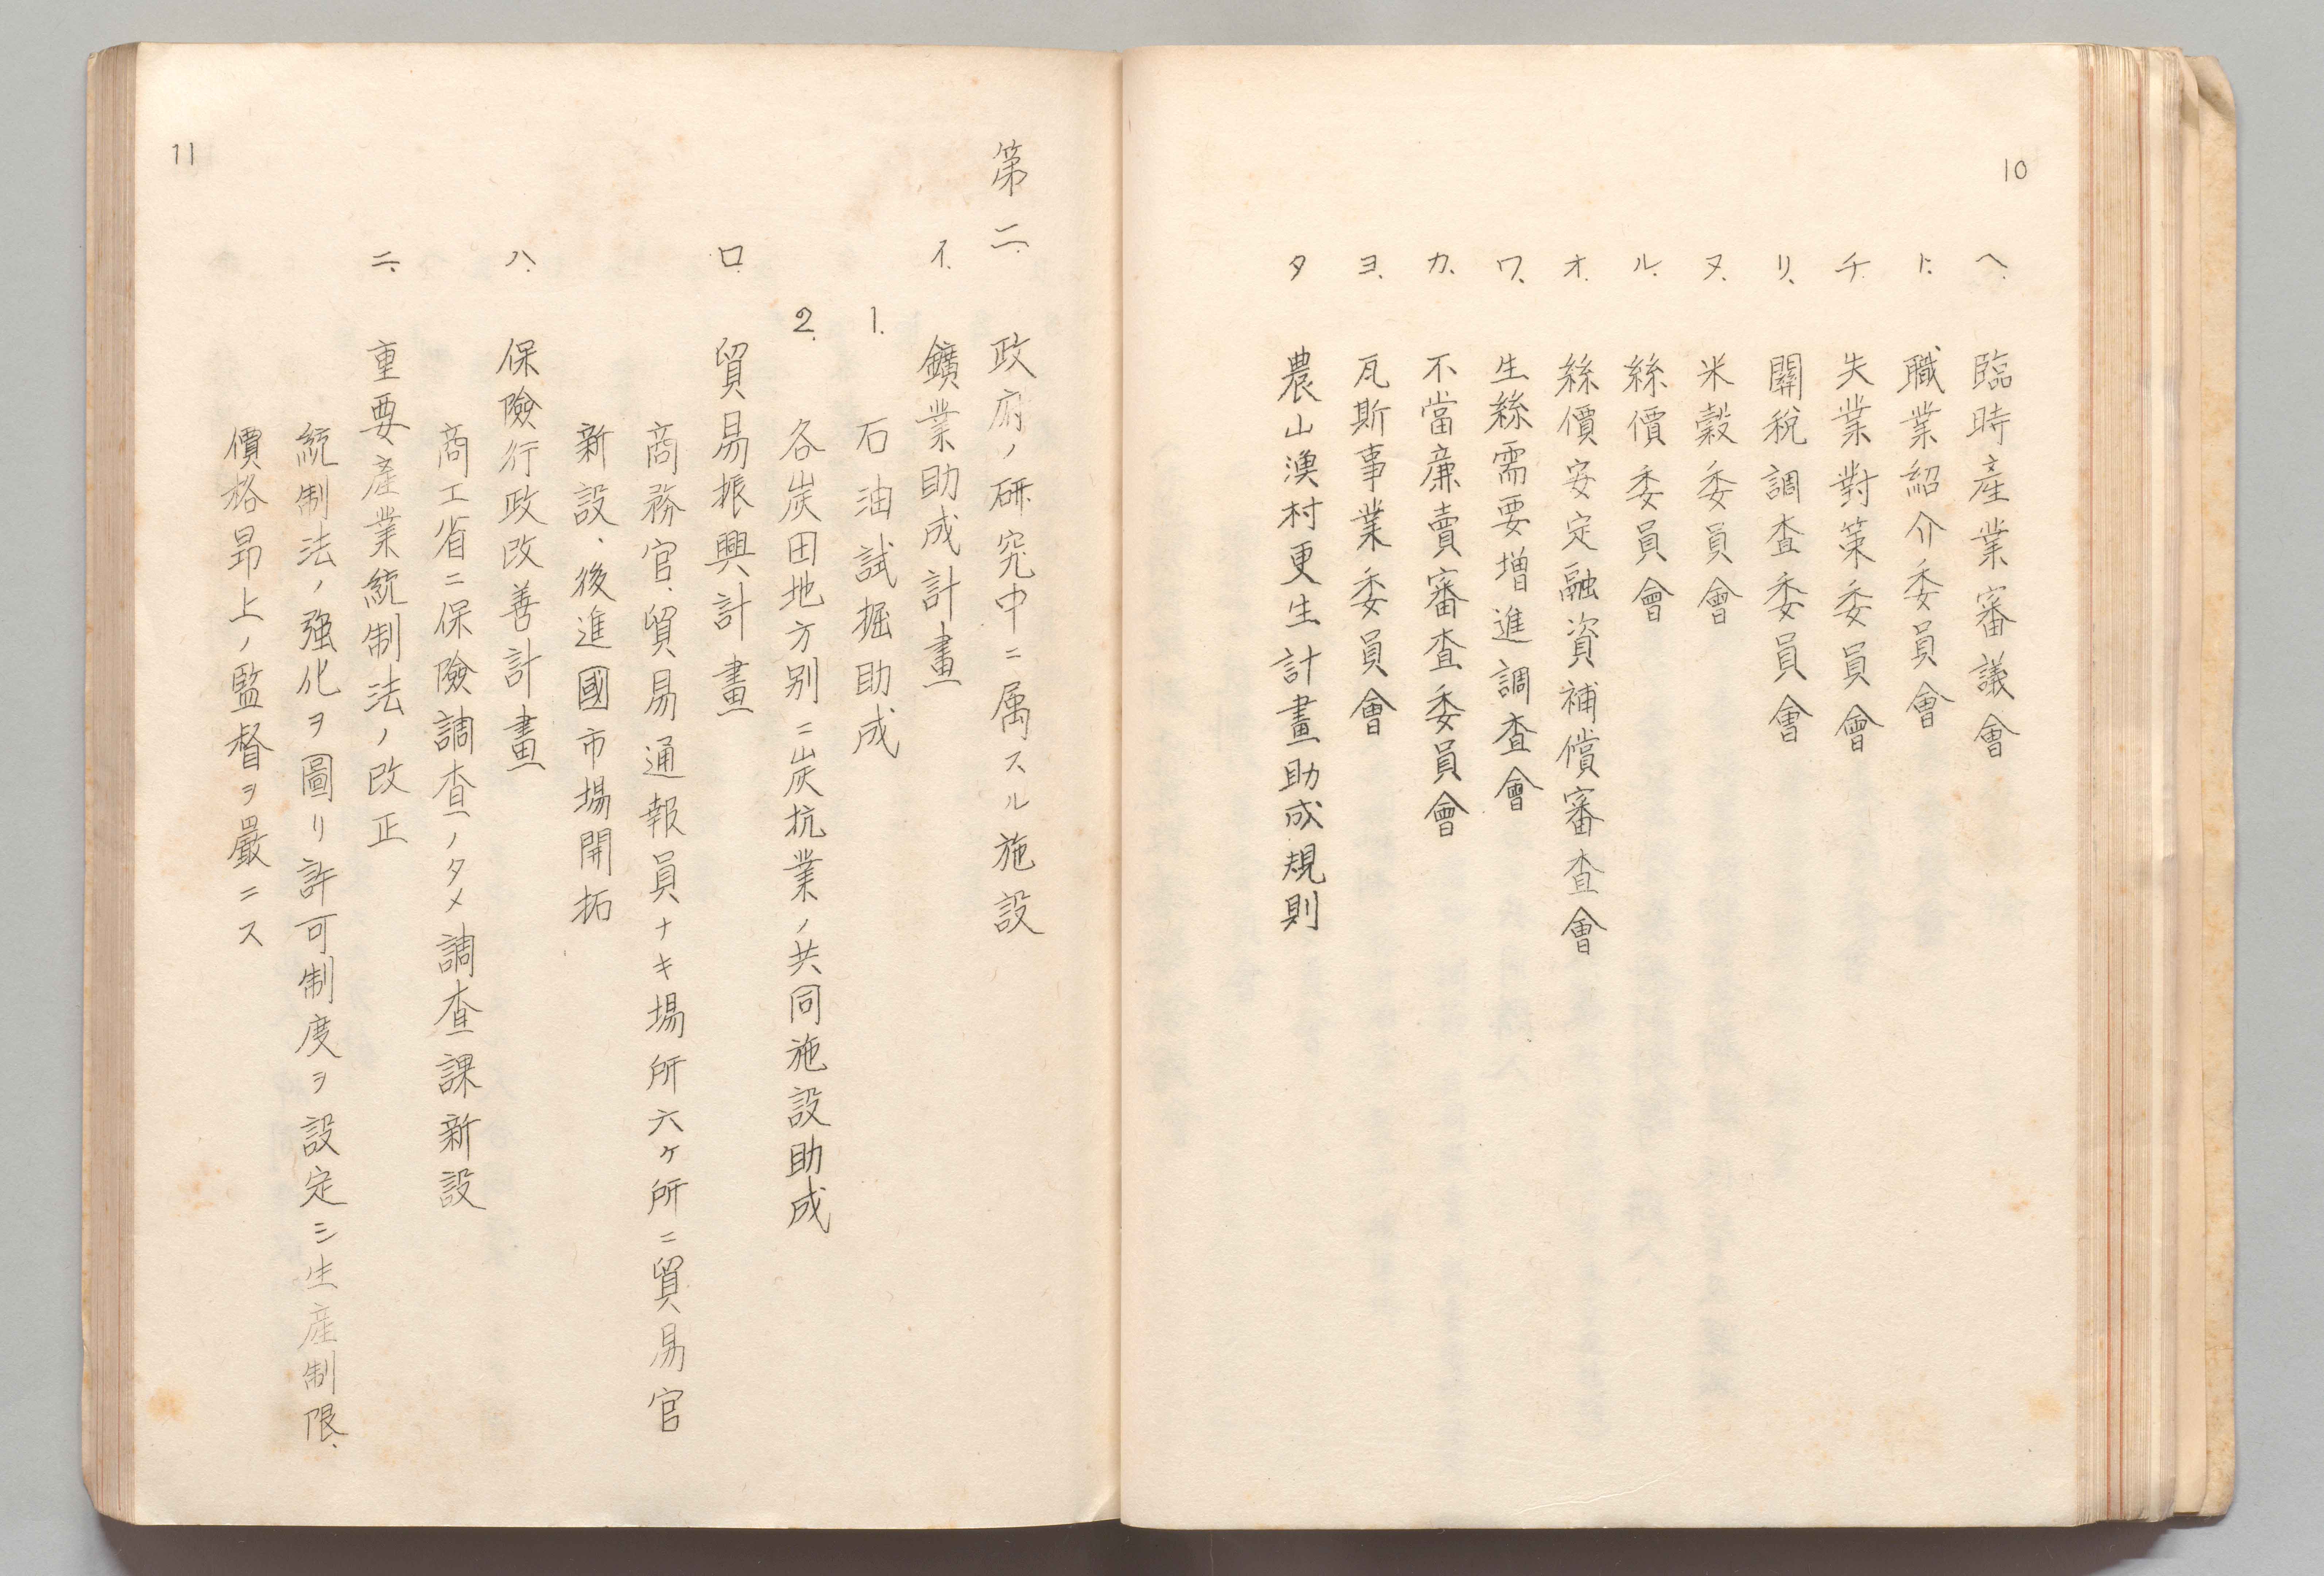 10
ヘ、臨時産業審議會
ト、職業紹介委員會
チ、失業對策委員會
リ、關税調査委員會
ヌ、米穀委員會
ル、絲價委員會
オ、絲價安定融資補償審査會
ワ、生絲需要增進調査會
カ、不當廉賣審査委員會
ヨ、瓦斯事業委員會
タ 農山漁村更生計畫助成規則
第二、政府ノ研究中ニ属スル施設
イ、鑛業助成計畫
1. 石油試掘助成
2. 各炭田地方別ニ炭抗業ノ共同施設助成
ロ、貿易振興計畫
商務官、貿易通報員ナキ場所六ヶ所ニ貿易官
新設、後進國市場開拓
ハ、保險行政改善計畫
商工省ニ保險調査ノタメ調査課新設
ニ、重要産業統制法ノ改正
統制法ノ强化ヲ圖リ許可制度ヲ設定シ生産制限、
價格昻上ノ監督ヲ嚴ニス
11